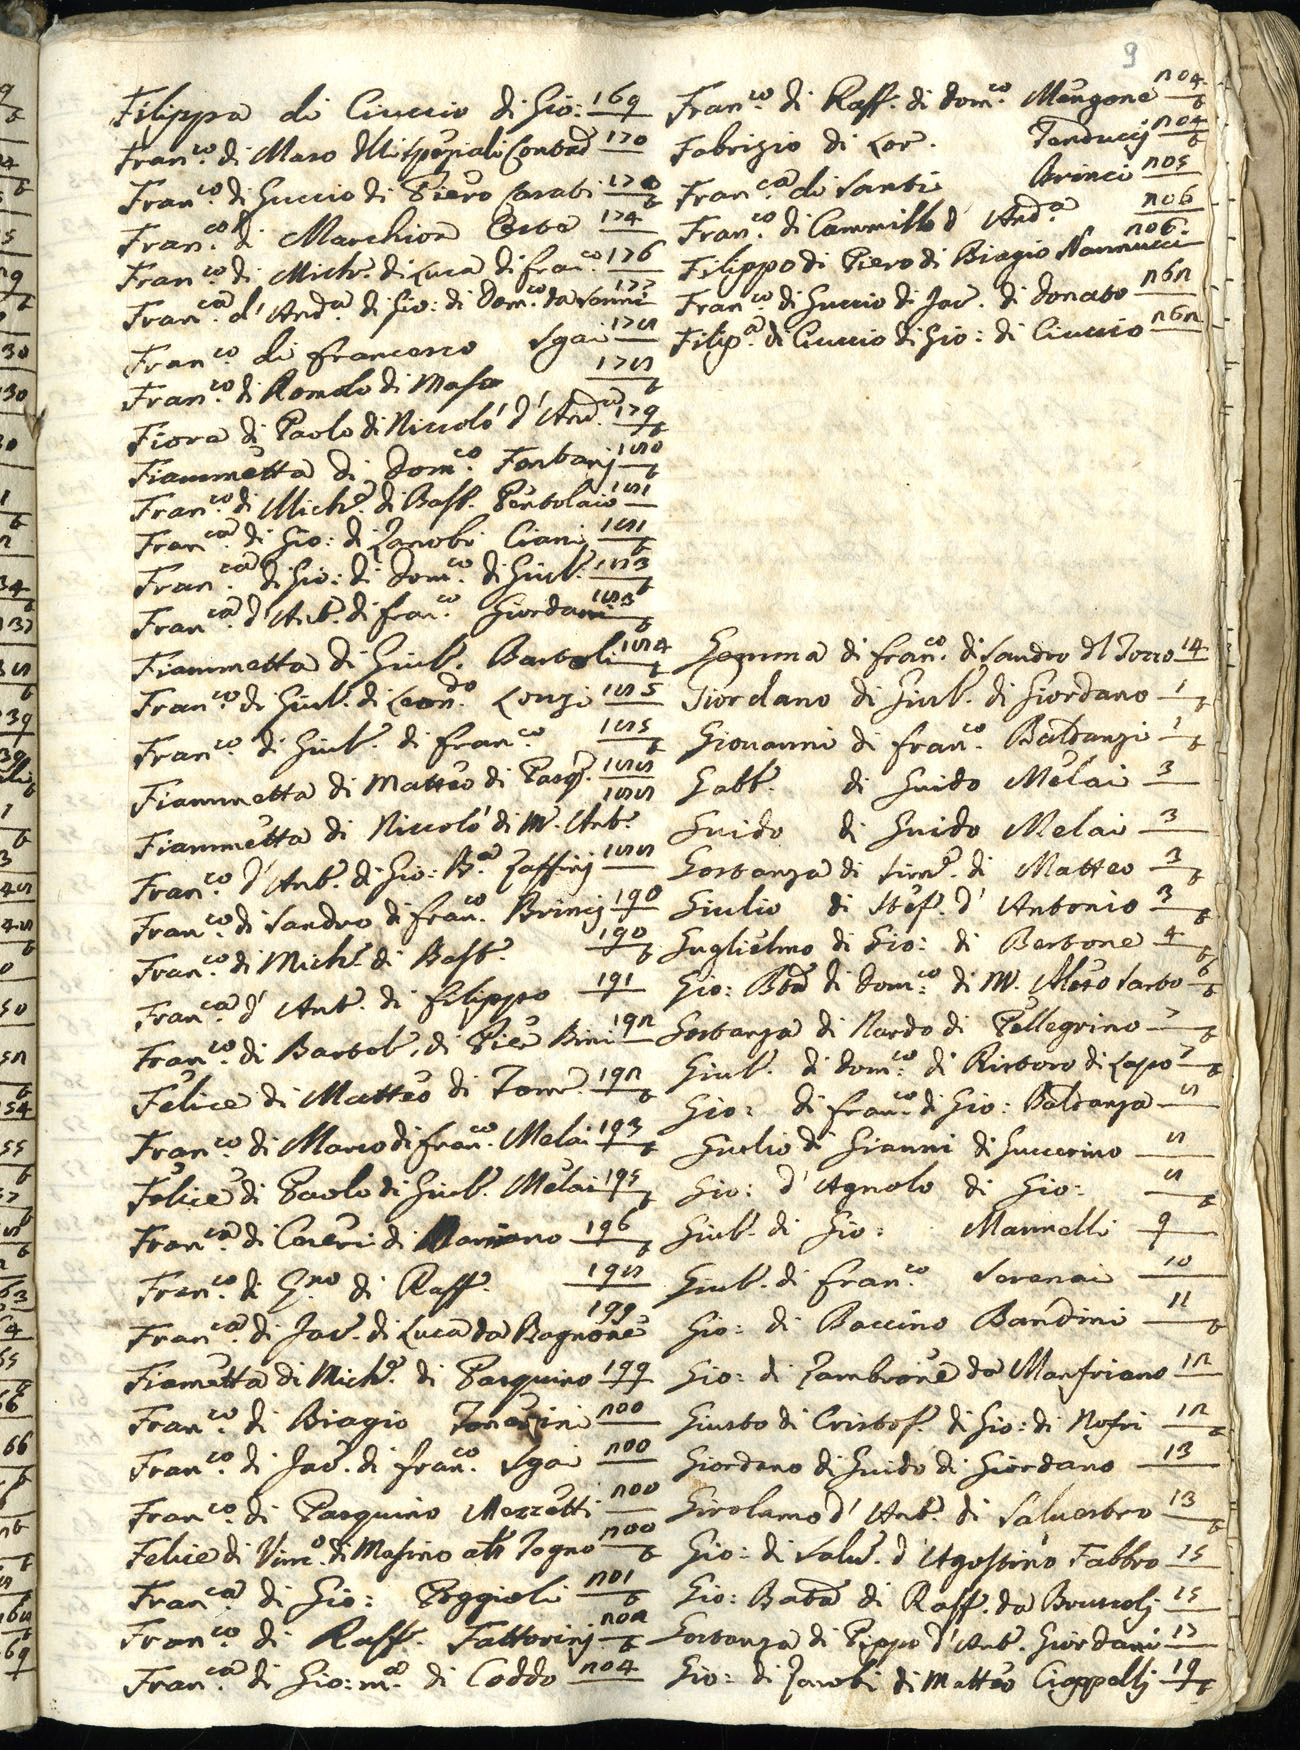 9
Filippa di Ciuccio di Gio: 169
Fran.co di Maso 170
Fran.co di Guccio di Piero 170 t
Fran.co di Marchion 174
Fran.co di Mich.e di Luca di fran.co 176
Fran.ca d' And.a di Gio: di Dom.co da 177
Fran.co di francesco Sgai 178
Fran.co di Romolo di Maso 178 t
Fiora di Paolo di Niccolò d' And.a 179 t
Fiammetta di Dom.co Fontanj 180 t
Fran.co di Mich.e di Bast. Pentolaio 181
Fran.ca di Gio: di Zanobi Ciani 181 t
Fran.ca di Gio: di Dom.co di Giul. 183 t
Fran.ca d' Ant. di fran.co Giordani 183 t
Fiammetta di Giul. Bartoli 184 t
Fran.co di Giul. di Leon.do Lenzi 185
Fran.co di Giul. di fran.co 185 t
Fiammetta di Matteo di Pasq. 188
Fiammetta di Niccolò di M. Ant. 188
Fran.co d' Ant. di Gio: B.a Zaffirj 188
Fran.co di Sandro di fran.co Brincj 190
Fran.co di Mich.e di Bast. 190 t
Fran.ca d' Ant. di filippo 191
Fran.co di Bartol. di Pier Bini 192
Felice di Matteo di Tom.e 192 t
Fran.co di Marco di fran.co Melai 193 t
Felice di Paolo di Giul. Melai 195 t
Fran.ca di Ceseri di Mariano 196 t
Fran.co di G.no di Raff. 198
Fran.ca di Jac. di Luca da Bagnone 199
Fiametta di Mich.e di Pasquino 199
Fran.co di Biagio 200
Fran.co di Jac. di fran.co Sgai 200
Fran.co di Pasquino Mezzetti 200
Felice di Vinc.o di Masino 200 t
Fran.ca di Gio: Poggioli 201 t
Fran.co di Raff. Fattorinj 202 t
Fran.ca di Gio:m.a di Coddo 204
Fran.co di Raff. di Dom.co Mengone 204 t
Fabrizio di Lor. Tanduccj 204 t
Fran.ca di Santi Brinci 205
Fran.co di Cammillo d' And.a 206
Filippo di Piero di Biagio Nannucci 206
Fran.co di Guccio di Jac. di Donato 262
Filip.a di Ciuccio di Gio: di Ciuccio 262
Gemma di fran.co di Sandro dl Tozzo 14
Giordano di Giul. di Giordano 1 t
Giovanni di fran.co Baldanzi 1 t
Gabb. di Guido Melai 3
Guido di Guido Melai 3
Gostanza di Sim.e di Matteo 3 t
Giulio di Stef. d' Antonio 3 t
Guglielmo di Gio: di Bertone 4 t
Gio: Bta di Dom.co di M. Meo Sarto 6 t
Gostanza di Nardo di Pellegrino 7 t
Giul. di Dom.co di Ristoro di Lapo 7 t
Gio: di fran.co di Gio: Baldanza 8
Giulio di Gianni di Guccerino 8
Gio: d' Agnolo di Gio: 8 t
Giul. di Gio: Mannelli 9
Giul. di fran.co Serenai 10
Gio: di Baccino Bandini 11 t
Gio: di Zambrone da Manfriano 12
Giusto di Cristof. di Gio: di Nofri 12 t
Giordano di Guido di Giordano 13
Girolamo d' Ant. di Salvestro 13 t
Gio: di Salv. d' Agostino Fabbro 15
Gio: Bata di Raff. da Bruscolj 15
Gostanza di Pippo d' Ant. Giordani 17 t
Gio: di Zanobi di Matteo Ciappellj 19 t